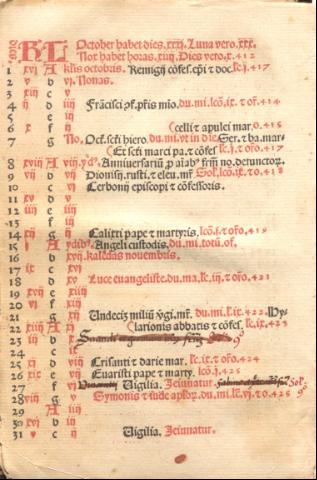 KL October habet dies.xxxi. Luna vero.xxx.
Nox habet horas.xiiij. Dies vero.x.412
1 xvi A klis octobris. Remigij cōfes.epi t doc.lc.j.417
2 b vi. Nonas.
3 xiij c v
4 ij d iiij Frācisci pf.pris mio.du.mi.lcō.ix.t of.414
5 e iij
6 x f ij (celli t apulei mar.o.415
7 g No. Oct.scti hiero.du.mi.vt in die Ser.t ba.mar-
(Et scti marci pa.t cōfes lc.j.t ofo.417
8 xviij A viij.yd. Anniversariū p aiab frīm no.defunctor.
9 vij b vij Dionisij.rusti.t eleu.mr. Sol.lcō.ix.t o.418
10 c vi Cerbonij episcopi t cōfessoris.
11 xv d v
12 iiij e iiij
13 f iij
14 xij g ij Calixti pape t martyris.lcō.j.t ofo.419
15 j A ydib. Angeli custodis.du.mi.totū of.
16 b xvij.kalēdas novembris.
17 ix c xvj
18 d xv Luce evangeliste.du.ma.lc.iij.t ofo.421
19 xvij e xiiij
20 vi f xiij
21 g xij Undeciz miliū v̄gi.mr.du.mi.l.ix.t 422.Hy-
22 xiiij A xi (larionis abbatis t cōfes.lc.ix.423
23 iij b x
24 c ix
25 xi d viij Crisanti t darie mar.lc.ix.t ofo.424
26 xix e vij Evaristi pape t marty.lcō.j.425
27 f vi Vigilia. Jeiunatur.
28 viij g v Symonis t iude aplor.du.mi.lc.vi.t o.425
29 A iiij
30 xvi b iij
31 v c ij Vigilia. Jeiunatur.